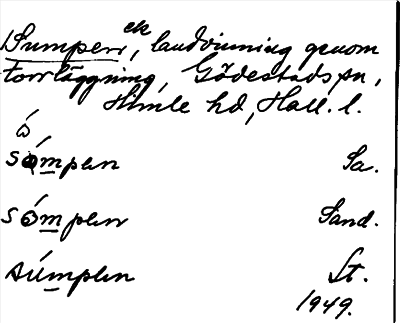 Sumpen, ek, landvinning genom
torrläggning, Gödestads sn,
Himle hd, Hall. l.
ò
sómpen Sa.
sómpen Sand.
súmpen St.
1949.